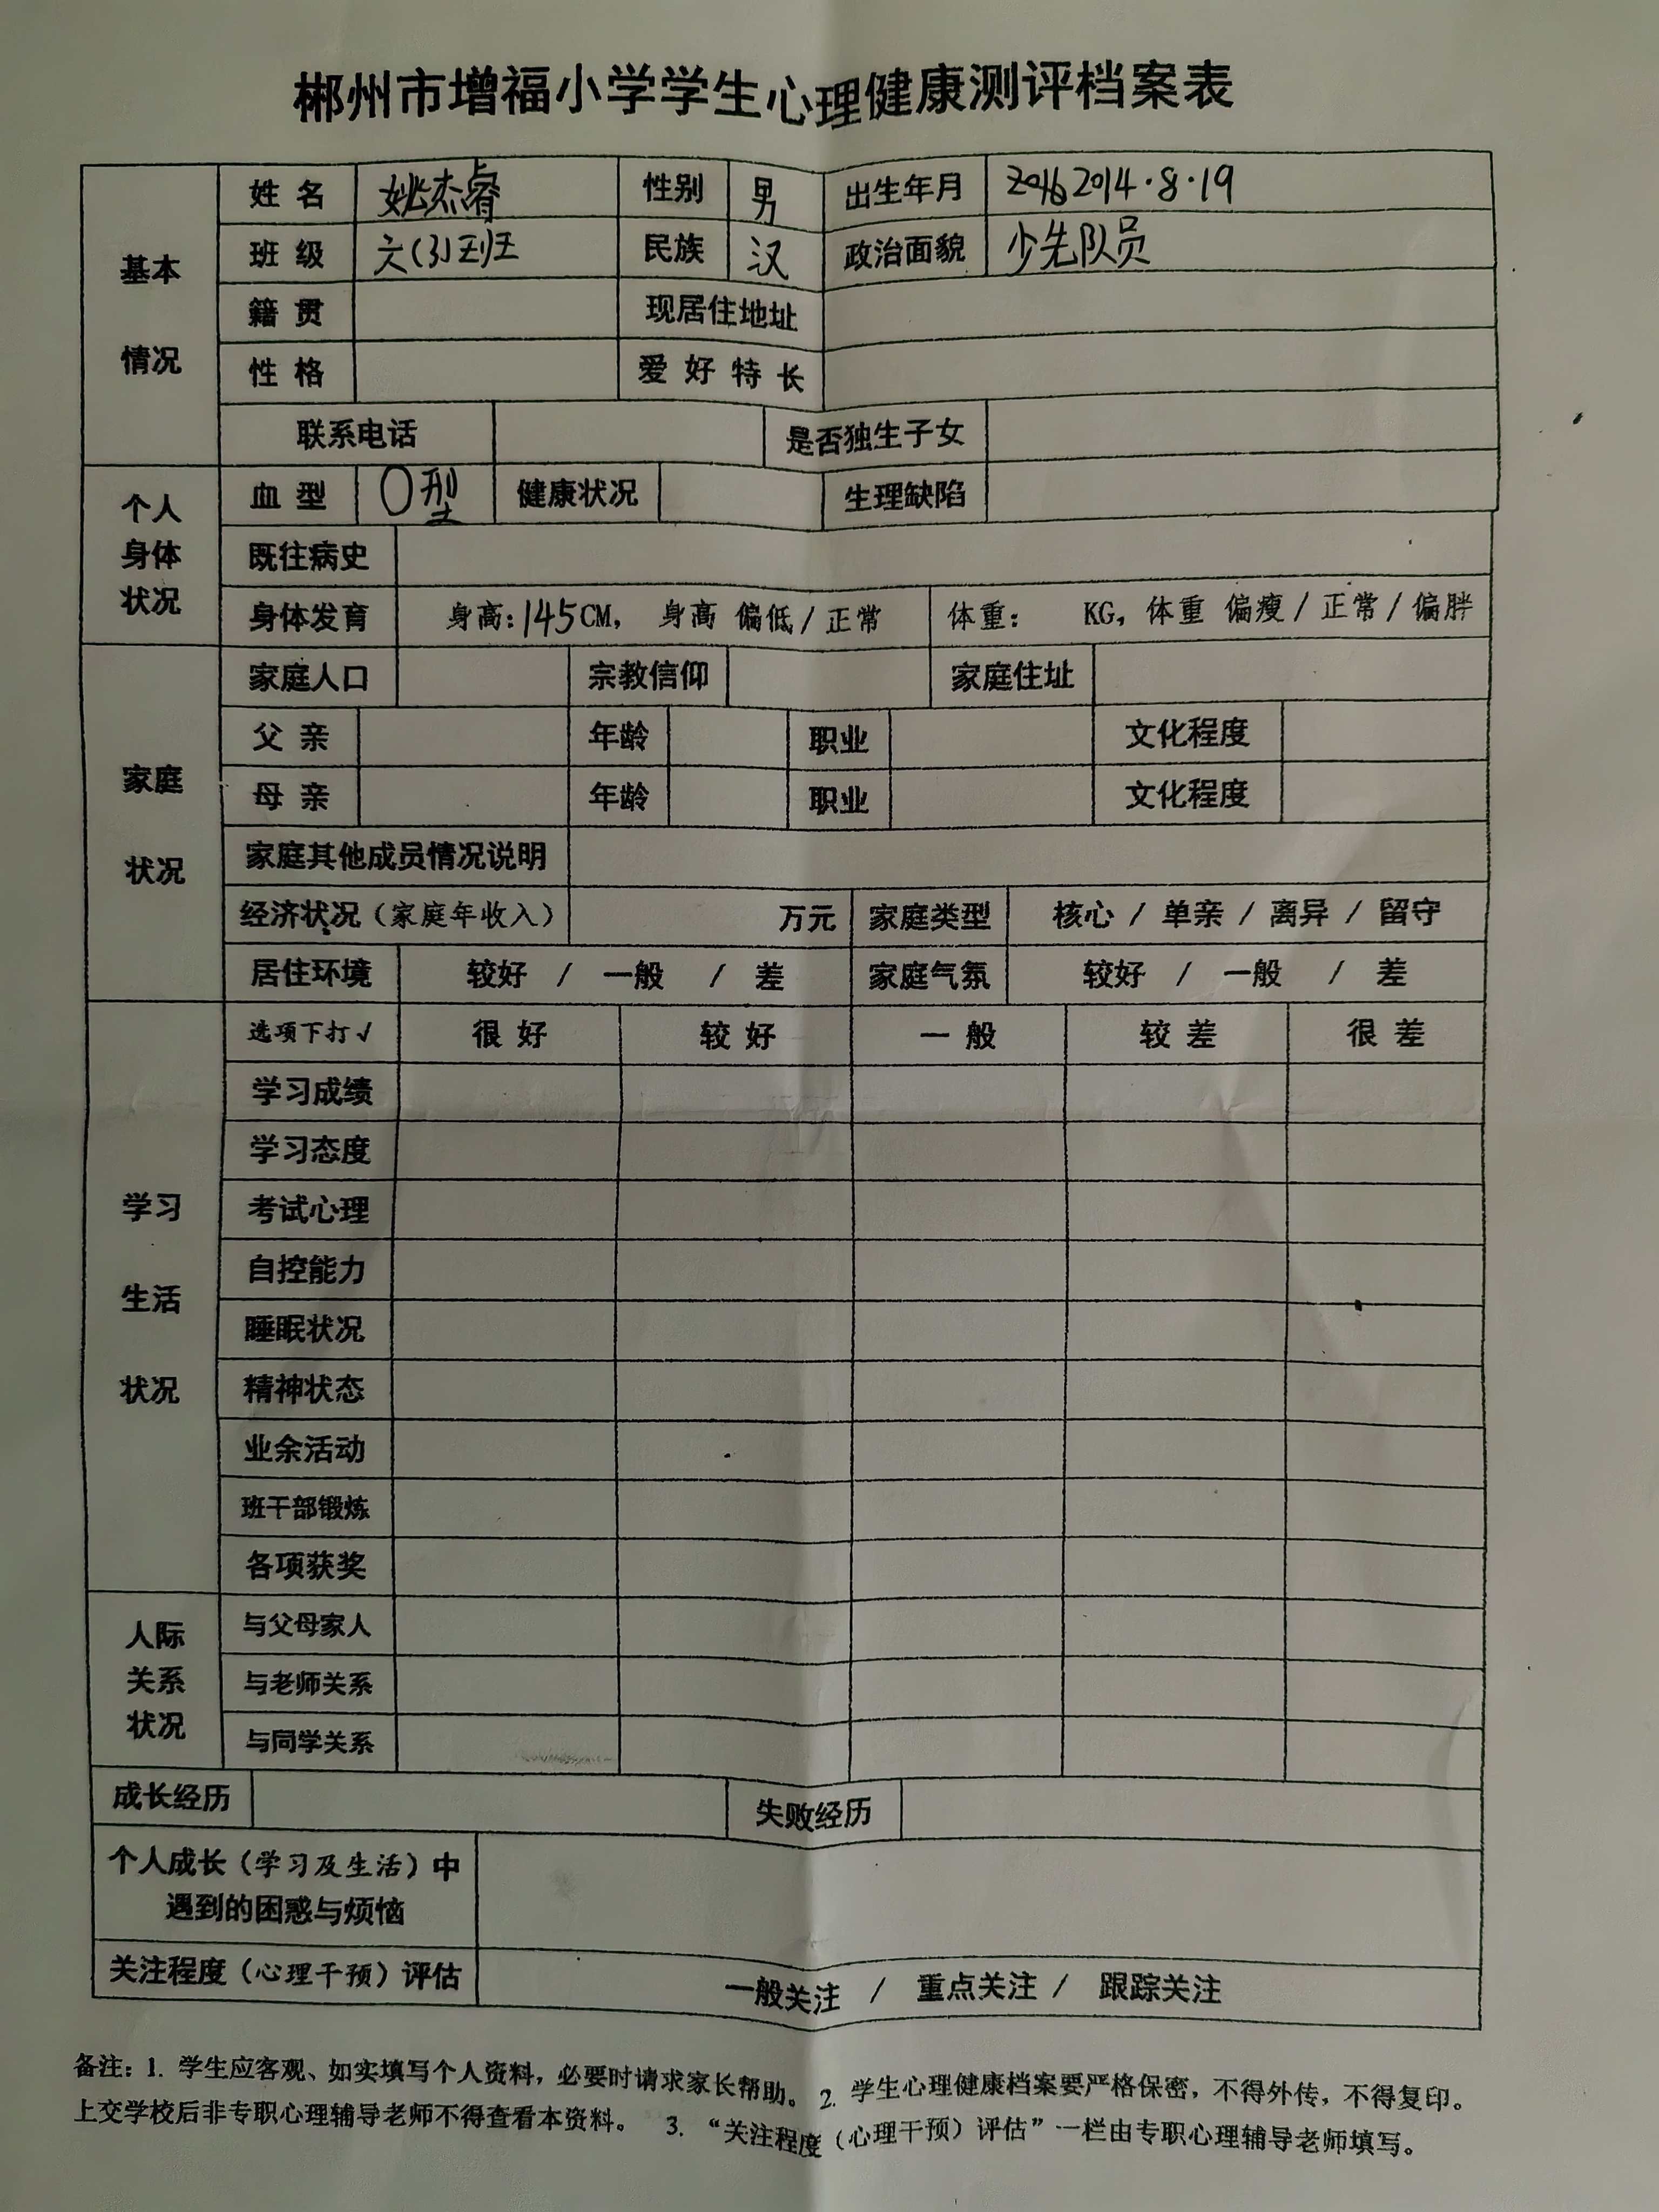 郴州市增福小学学生心理健康测评档案表
基本情况
姓名 姚杰睿 性别 男 出生年月 2014.8.19
班级 (3)班 民族 汉 政治面貌 少先队员
籍贯 现居住地址
性格 爱好特长
联系电话 是否独生子女
个人身体状况
血型 O型 健康状况 生理缺陷
既往病史
身体发育 身高:145CM, 身高 偏低/正常 体重: KG, 体重 偏瘦/正常/偏胖
家庭状况
家庭人口 宗教信仰 家庭住址
父亲 年龄 职业 文化程度
母亲 年龄 职业 文化程度
家庭其他成员情况说明
经济状况(家庭年收入) 万元 家庭类型 核心 / 单亲 / 离异 / 留守
居住环境 较好 / 一般 / 差 家庭气氛 较好 / 一般 / 差
学习生活状况
选项下打√ 很好 较好 一般 较差 很差
学习成绩
学习态度
考试心理
自控能力
睡眠状况
精神状态
业余活动
班干部锻炼
各项获奖
人际关系状况
与父母家人
与老师关系
与同学关系
成长经历 失败经历
个人成长(学习及生活)中
遇到的困惑与烦恼
关注程度(心理干预)评估 一般关注 / 重点关注 / 跟踪关注
备注: 1. 学生应客观、如实填写个人资料,必要时请求家长帮助。 2. 学生心理健康档案要严格保密,不得外传,不得复印。
上交学校后非专职心理辅导老师不得查看本资料。 3. “关注程度(心理干预)评估”一栏由专职心理辅导老师填写。